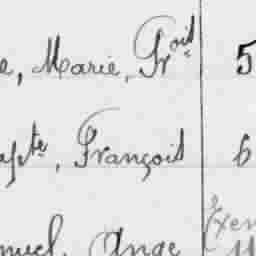 e, Marie, Fr.oit 5
apte, François 6
muel, Ange